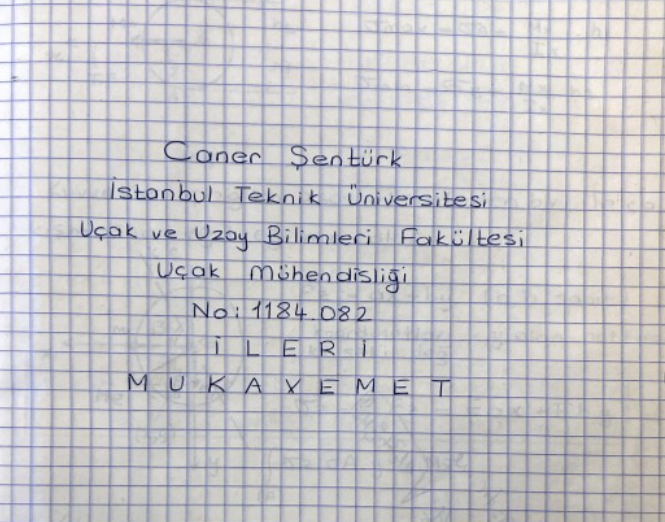 Caner Şentürk
İstanbul Teknik Üniversitesi
Uçak ve Uzay Bilimleri Fakültesi
Uçak Mühendisliği
No: 1184.082
İ L E R İ
M U K A V E M E T